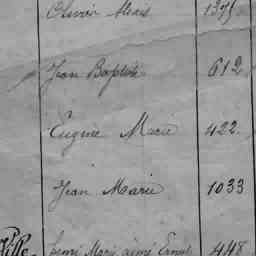 Olivier Alexis 1375
Jean Baptiste 612
Eugène Marie 422.
Jean Marie 1033
Ville Henri Marie aimé Ernest 448